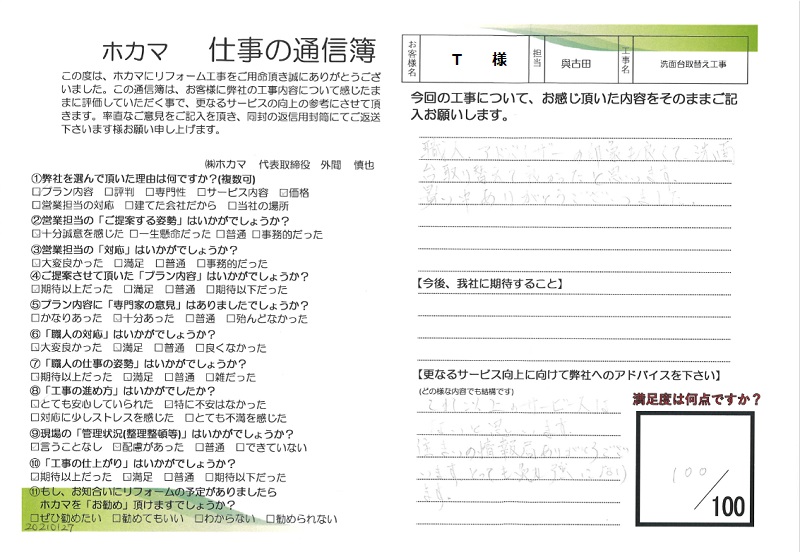 ホカマ　仕事の通信簿
この度は、ホカマにリフォーム工事をご用命頂き誠にありがとうござ
いました。この通信簿は、お客様に弊社の工事内容について感じたま
まに評価していただく事で、更なるサービスの向上の参考にさせて頂
きます。率直なご意見をご記入を頂き、同封の返信用封筒にてご返送
下さいます様お願い申し上げます。
㈱ホカマ　代表取締役　外間　慎也
①弊社を選んで頂いた理由は何ですか？(複数可)
□プラン内容　□評判　□専門性　□サービス内容　☑価格
□営業担当の対応　□建てた会社だから　□当社の場所
②営業担当の「ご提案する姿勢」はいかがでしょうか？
☑十分誠意を感じた　□一生懸命だった　□普通　□事務的だった
③営業担当の「対応」はいかがでしょうか？
□大変良かった　☑満足　□普通　□事務的だった
④ご提案させて頂いた「プラン内容」はいかがでしょうか？
☑期待以上だった　□満足　□普通　□期待以下だった
⑤プラン内容に「専門家の意見」はありましたでしょうか？
□かなりあった　☑十分あった　□普通　□殆んどなかった
⑥「職人の対応」はいかがでしょうか？
☑大変良かった　☑満足　□普通　□良くなかった
⑦「職人の仕事の姿勢」はいかがでしょうか？
☑期待以上だった　□満足　□普通　□雑だった
⑧「工事の進め方」はいかがでしたか？
□とても安心していられた　□特に不安はなかった
□対応に少しストレスを感じた　□とても不満を感じた
⑨現場の「管理状況(整理整頓等)」はいかがでしょうか？
☑言うことなし　☑配慮があった　□普通　□できていない
⑩「工事の仕上がり」はいかがでしょうか？
☑期待以上だった　☑満足　□普通　□期待以下だった
⑪もし、お知合いにリフォームの予定がありましたら
ホカマを「お勧め」頂けますでしょうか？
□ぜひ勧めたい　□勧めてもいい　□わからない　□勧められない
20210127
お客様名　T　様　担当　與古田　工事名　洗面台取替え工事
今回の工事について、お感じ頂いた内容をそのままご記
入お願いします。
職人、アドバイザーの印象も良くて洗面
台取り替えて良かったと思います。
ありがとうございました。
【今後、我社に期待すること】
【更なるサービス向上に向けて弊社へのアドバイスを下さい】
(どの様な内容でも結構です)
満足度は何点ですか？
これ以上のサービスは
ないと思います
ありがとうござ
います
ます。
100／100